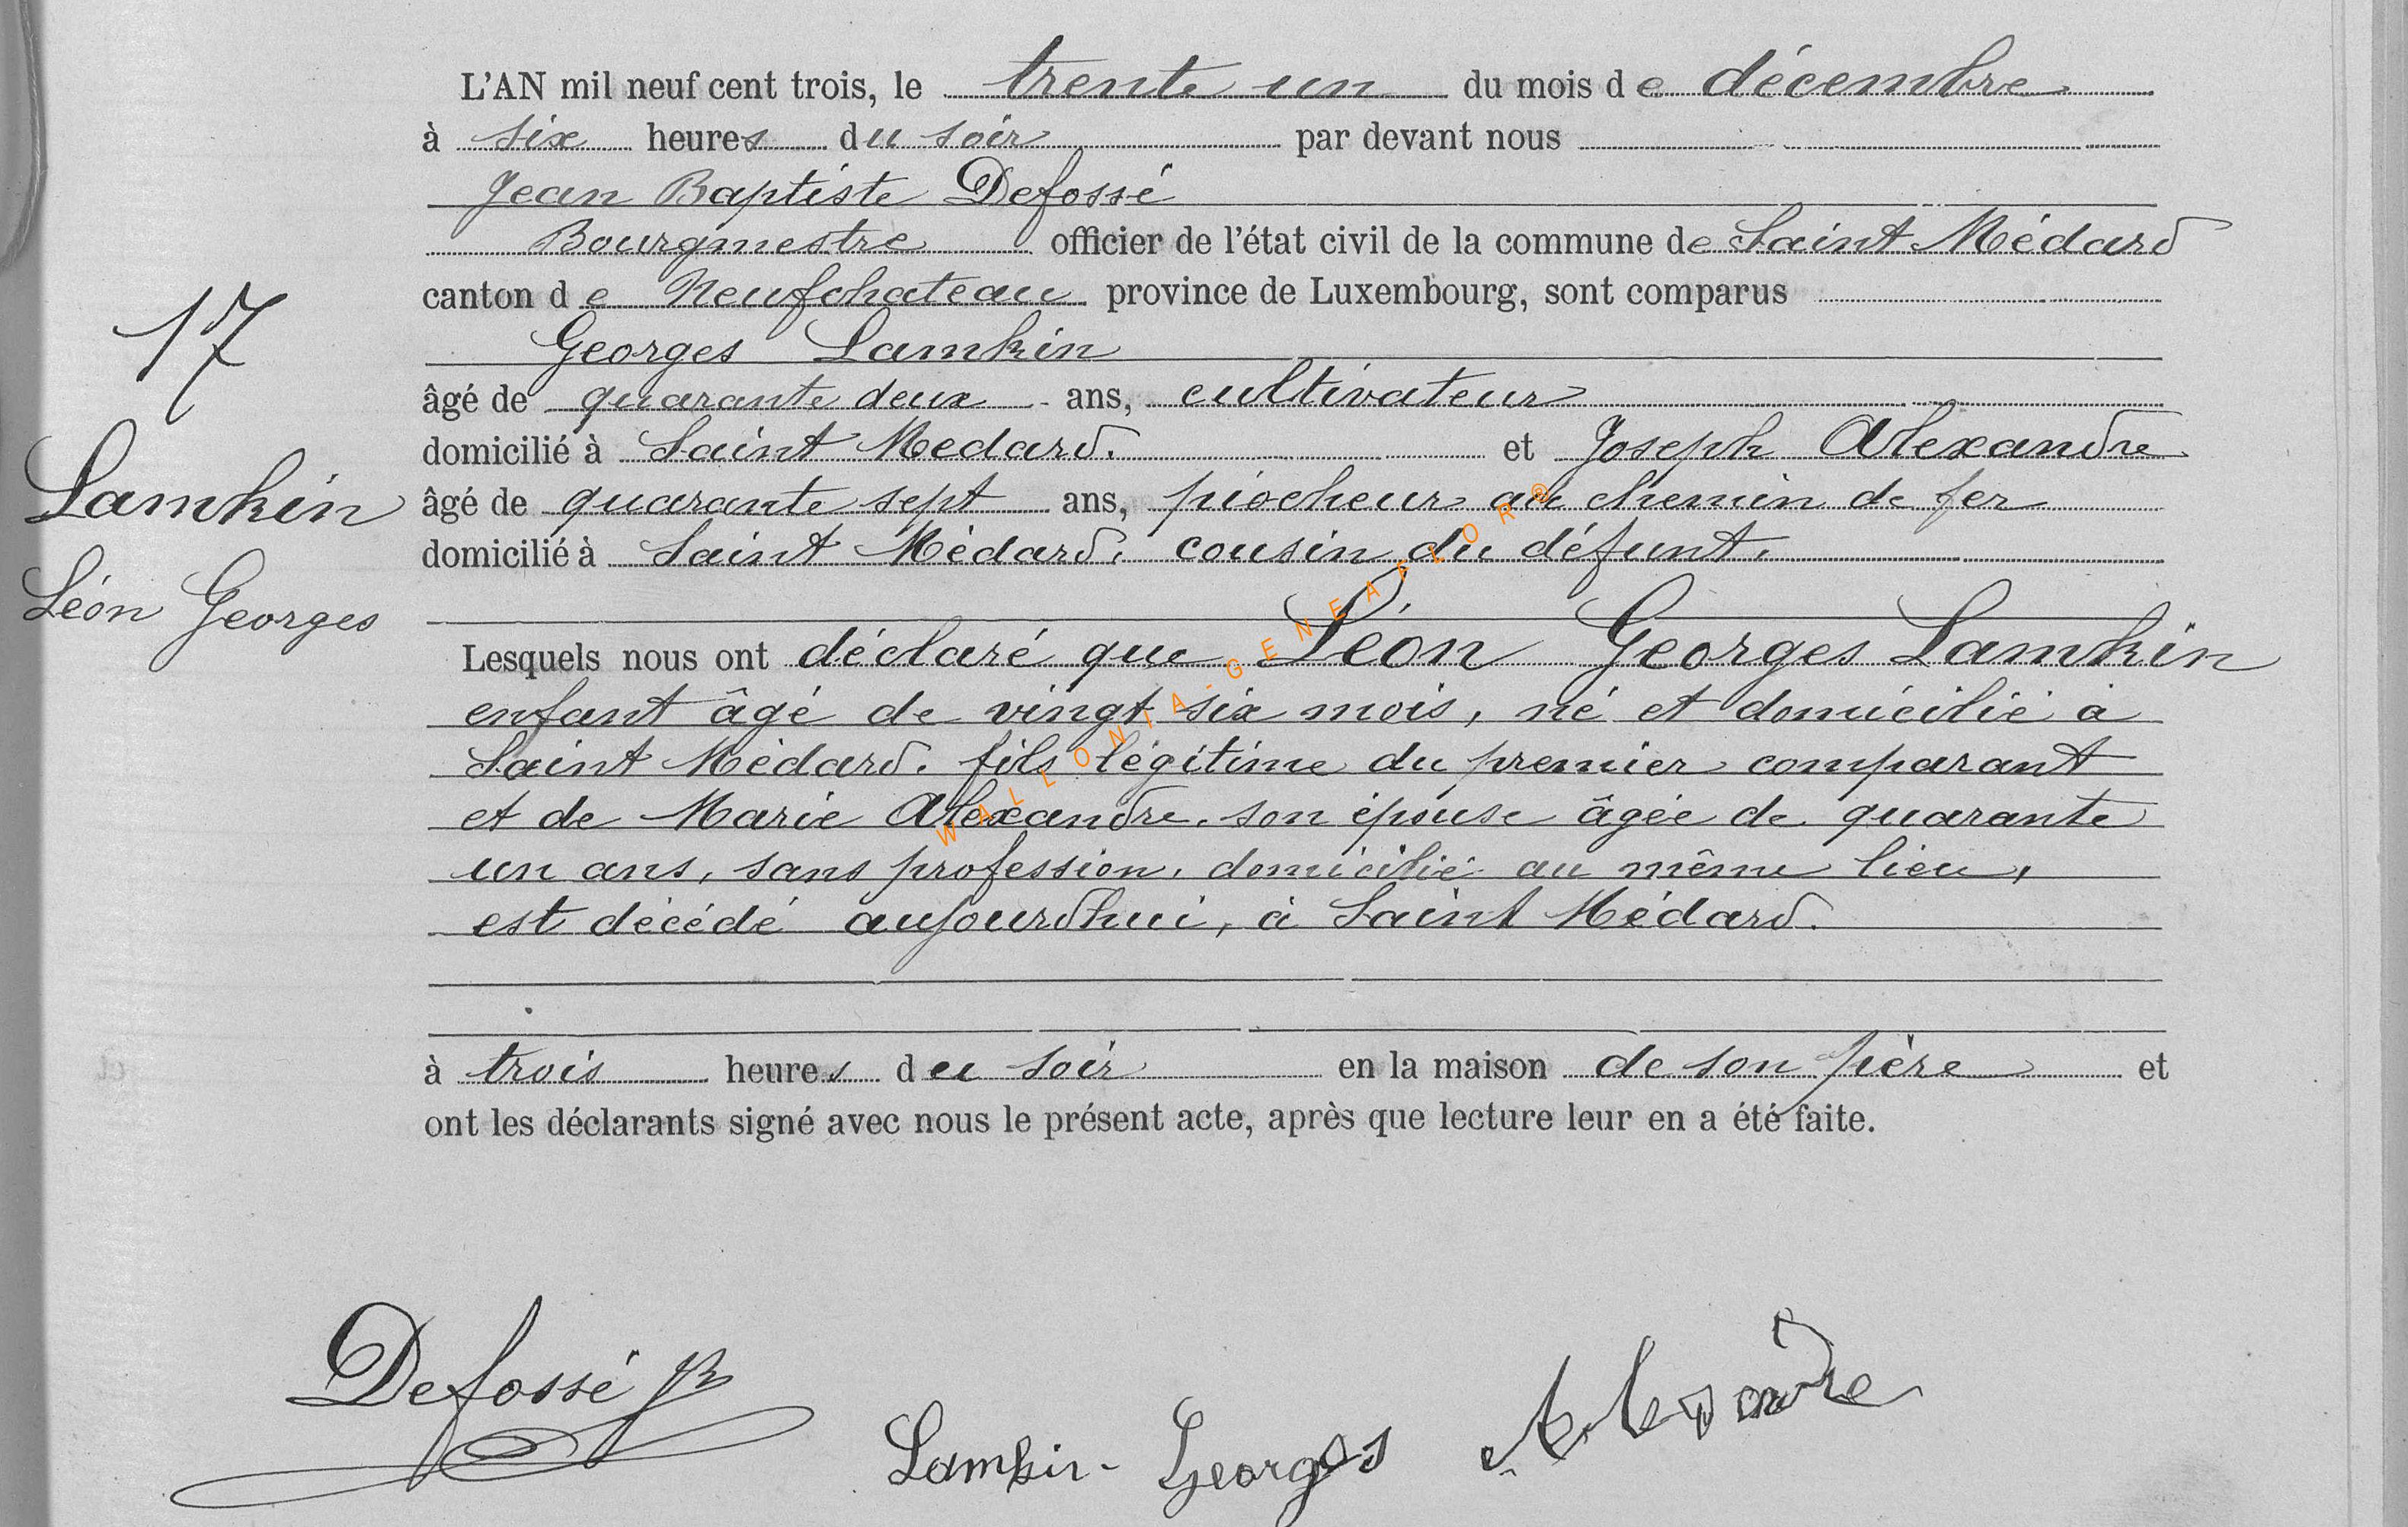 L'AN mil neuf cent trois, le trente un du mois de décembre
à six heures du soir par devant nous
Jean Baptiste Defossé
Bourgmestre officier de l'état civil de la commune de Saint Médard
canton de Neufchateau province de Luxembourg, sont comparus
Georges Lamkin
âgé de quarante deux ans, cultivateur
domicilié à Saint Medard. et Joseph Alexandre
âgé de quarante sept ans, piocheur au chemin de fer
domicilié à Saint Médard. cousin du défunt.
17
Lamkin
Léon Georges
Lesquels nous ont déclaré que Léon Georges Lamkin
enfant âgé de vingt six mois, né et domicilié à
Saint Médard. fils légitime du premier comparant
et de Marie Alexandre. son épouse âgée de quarante
un ans, sans profession, domicilié au même lieu,
est décédé aujourdhui, à Saint Médard.
à trois heures du soir en la maison de son père et
ont les déclarants signé avec nous le présent acte, après que lecture leur en a été faite.
Defossé JB
Lamkin - Georges
Alexandre
WALLONIA-GENEAFLOR®